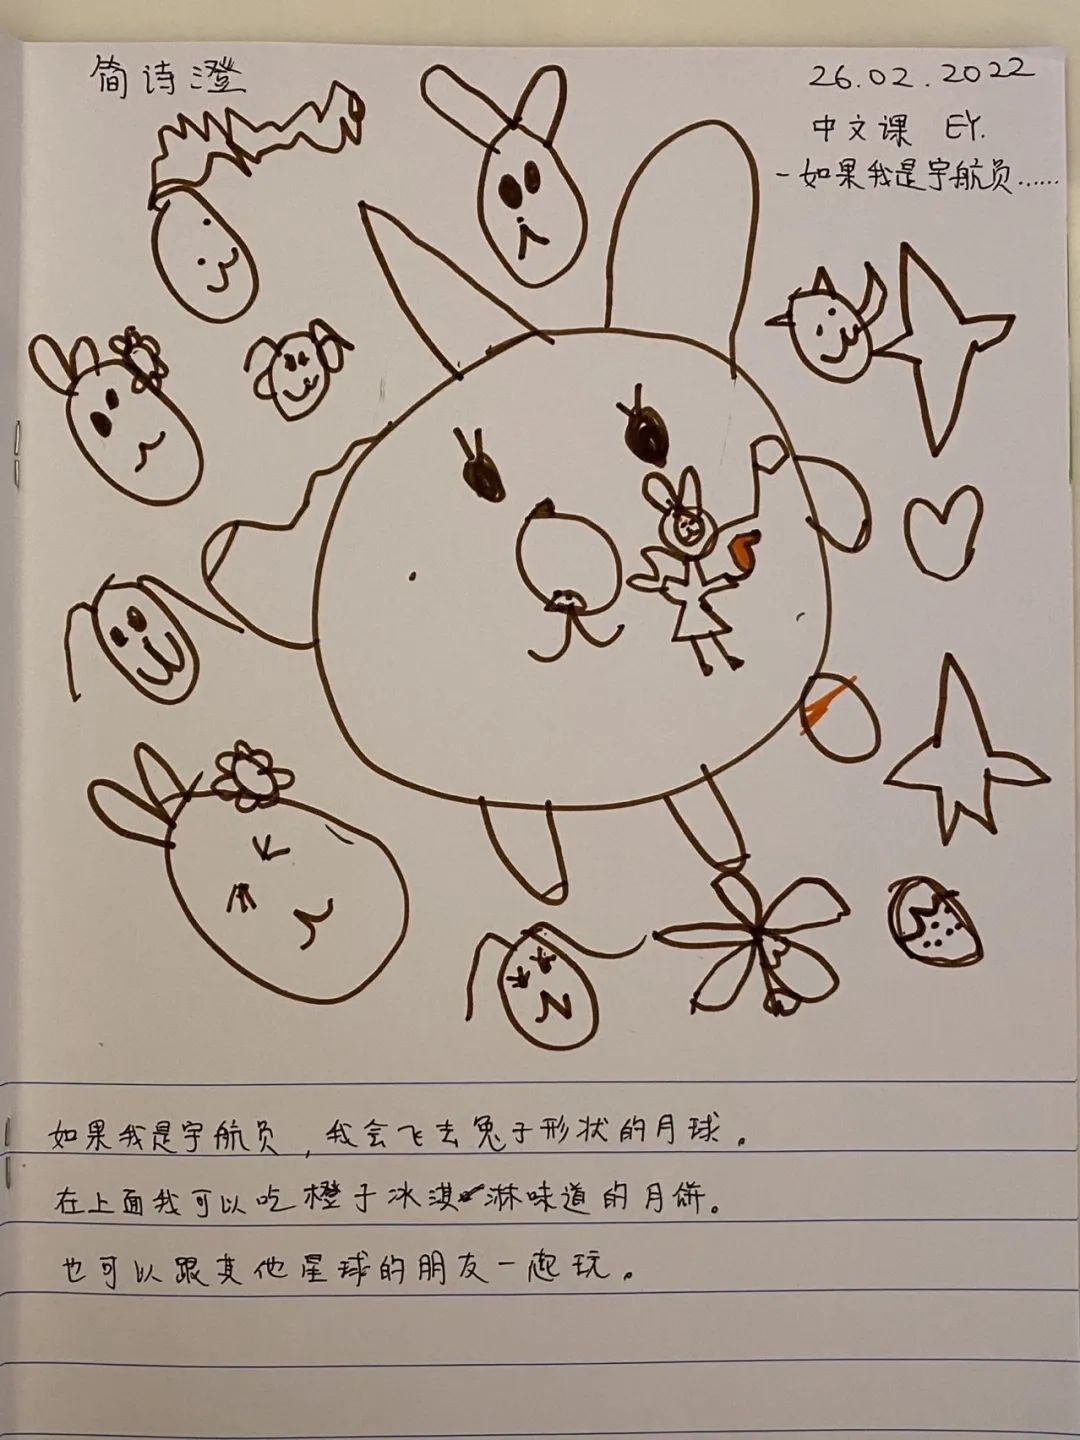 简诗澄
26.02.2022
中文课 EY.
-如果我是宇航员……
如果我是宇航员,我会飞去兔子形状的月球。
在上面我可以吃橙子冰淇淋味道的月饼。
也可以跟其他星球的朋友一起玩。